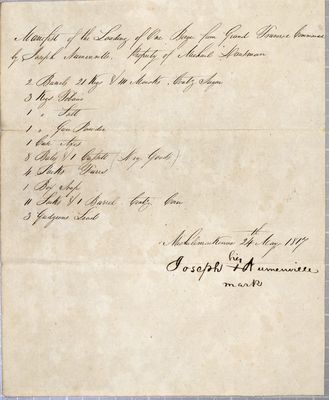 Manifest of the Loading of One Barge from Grand Traverse Commanded
by Joseph Aumenville. Property of Michael
2 Barrels 21 Kegs & 111 Mococks Contg Sugar
3 Kegs Tobacco
1 " Salt
1 " Gun Powder
1 Case Axes
3 Bales & 1 (Dry Goods)
4 Packs Furrs
1 Box Soap
11 Sacks & 1 Barrel Contg Corn
3 Lead
Michilimackinac 24th May 1817
Joseph his + Aumenville
mark